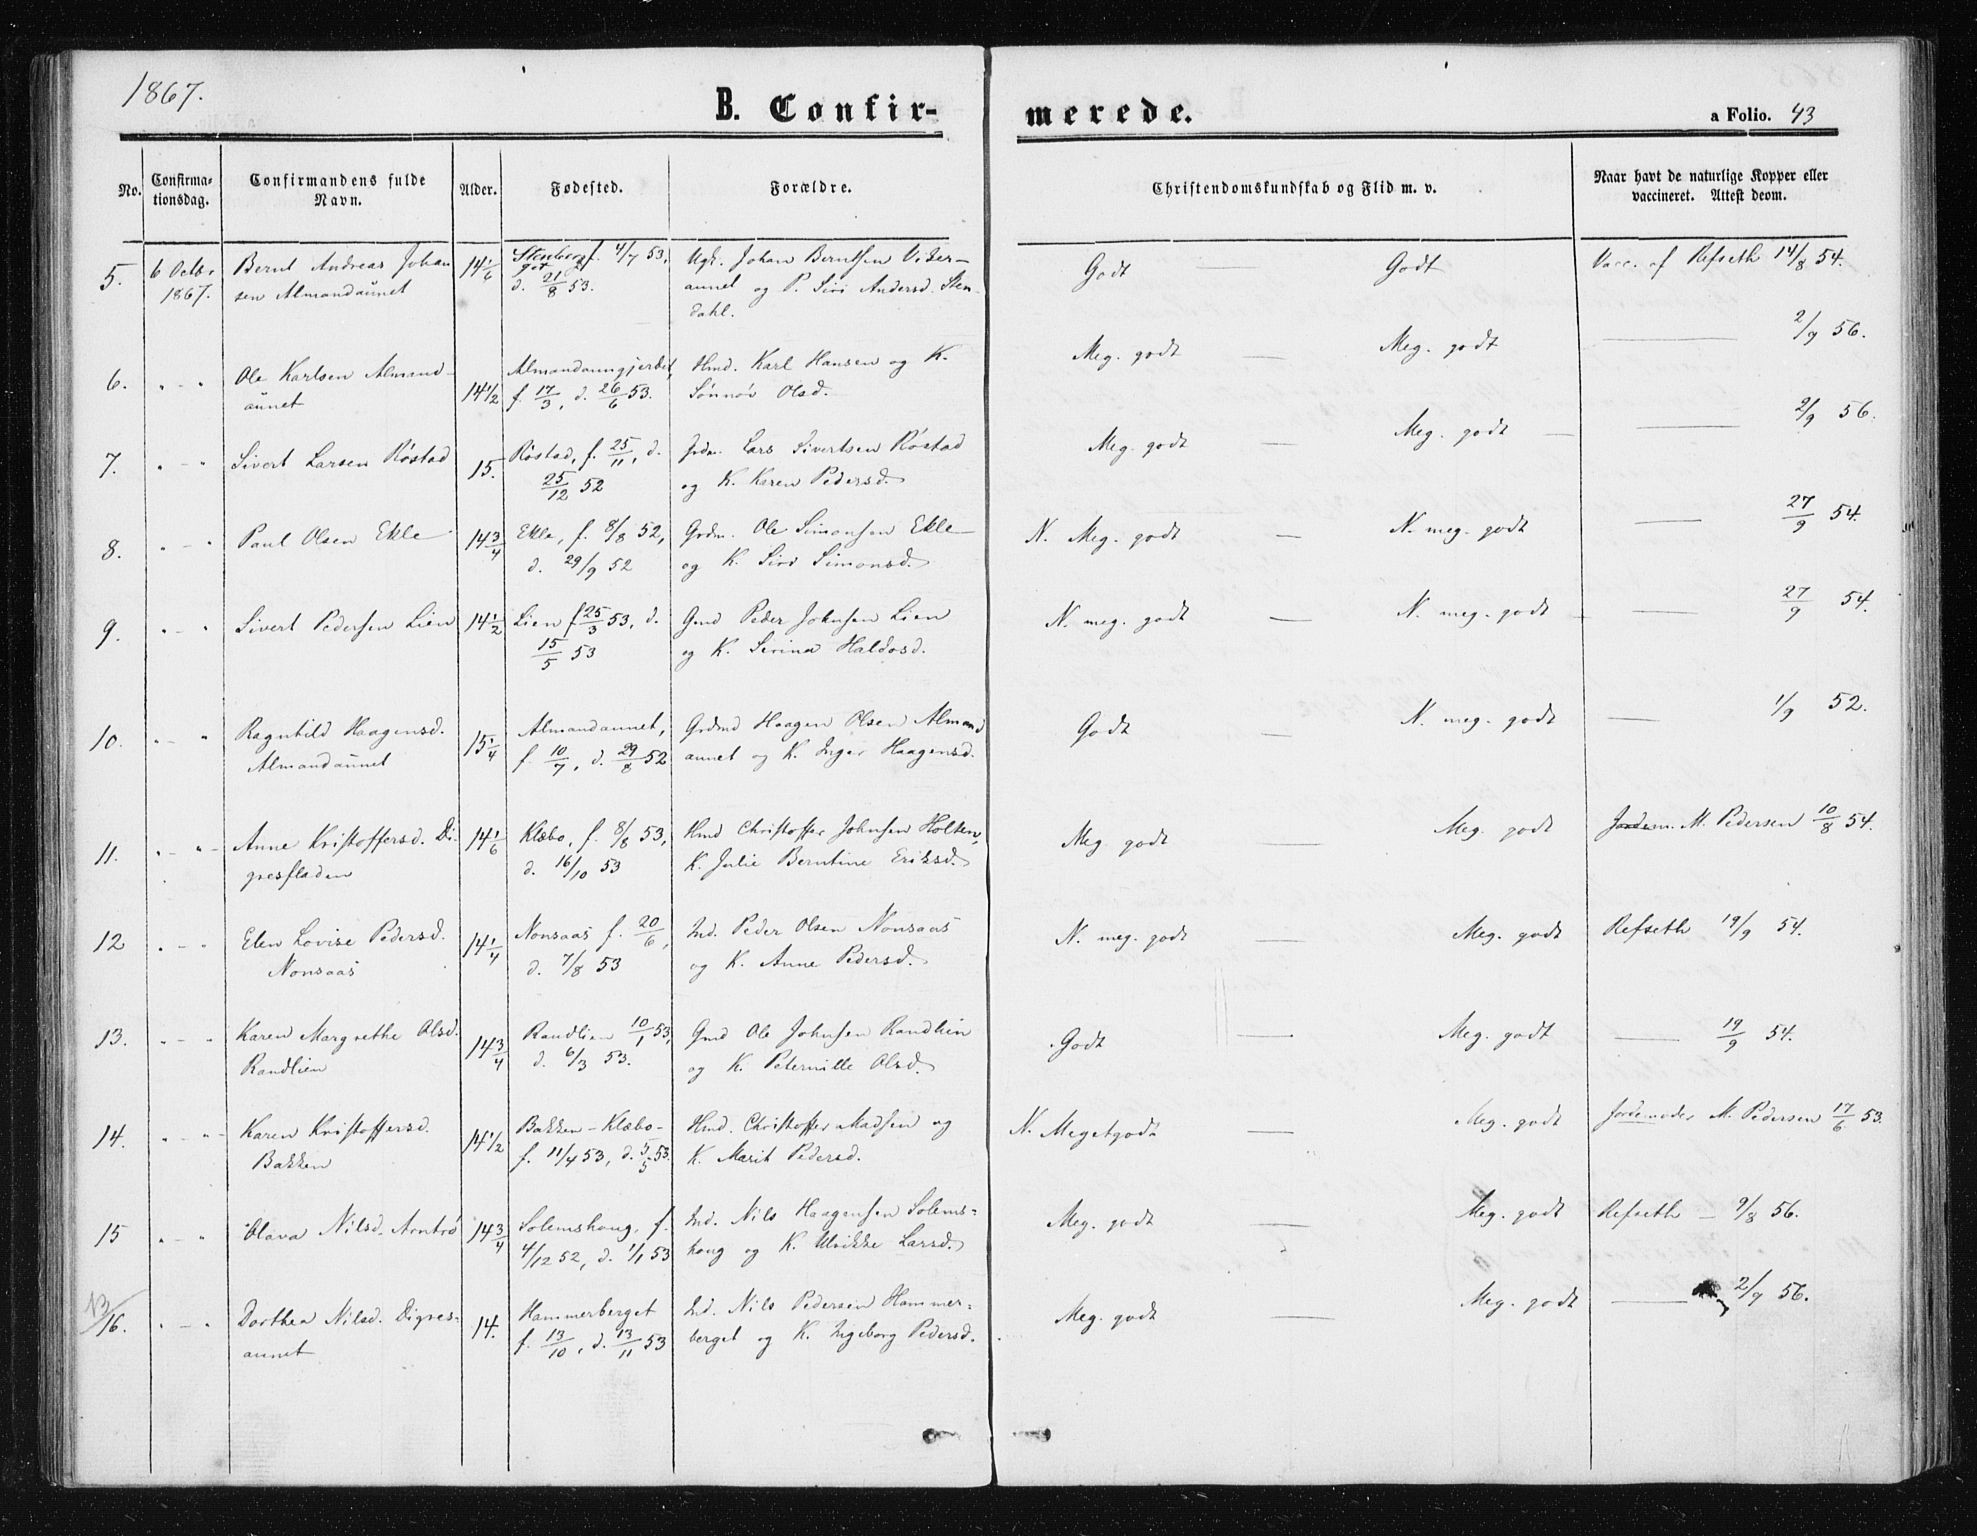 1867.
B. Confir-
merede.
a Folio. 43
No.
Confirma-
tionsdag.
Confirmandens fulde
Navn.
Alder.
Fødested.
Forældre.
Christendomskundskab og Flid m. v.
Naar havt de naturlige Kopper eller
vaccineret. Attest deom.
5. 6 Octbr 1867. Bernt Andreas Johan
sen Almandaunet
14 1/6
f. 4/7 53,
d. 21/8 53.
Ugk. Johan Berntsen Viker-
aunet og P. Siri Andersd. Sten-
dahl.
Godt — Godt
Vacc. af Refseth 14/8 54.
6. " - " Ole Karlsen Almand-
aunet
14 1/2
f. 17/3, d. 26/6 53.
Hmd. Karl Hansen og K.
Sønnøv Olsd.
Meg. godt — Meg. godt — 2/9 56.
7. " - " Sivert Larsen Røstad
15.
Røstad, f. 25/11, d.
25/12 52
Lars Sivertsen Røstad
og K. Karen Pedersd.
Meg. godt — Meg. godt — 2/9 56.
8. " - " Paul Olsen Ekle
14 3/4
Ekle, f. 8/8 52,
d. 29/9 52
Grdm. Ole Simonsen Ekle
og K. Siri Simonsd.
N. Meg. godt — N. meg. godt — 27/9 54.
9. " - " Sivert Pedersen Lien
14 1/2
Lien f. 25/3 53, d.
15/5 53
Gmd Peder Johnsen Lien
og K. Sirina Haldosd.
N. meg. godt — N. meg. godt — 27/9 54.
10. " - " Ragnhild Haagensd.
Almandaunet
15 1/4
Almandaunet,
f. 10/7, d. 29/8 52
Grdmd Haagen Olsen Almand
aunet og K. Inger Haagensd.
Godt — N. meg. godt — 1/9 52.
11. " - " - Anne Kristoffersd. Di-
gresfladen
14 1/6
Klæbo, f. 8/8 53,
d. 16/10 53
Hmd Christoffer Johnsen Holten,
K. Julie Berntine Eriksd.
Meg. godt — Meg. godt
Jordem. M. Pedersen 10/8 54.
12 " - " Elen Lovise Pedersd.
Nonsaas
14 1/4
Nonsaas f. 20/6,
d. 7/8 53
Ind. Peder Olsen Nonsaas
og K. Anne Pedersd.
N. meg. godt — Meg. godt
Refseth 19/9 54.
13. " - " Karen Margrethe Olsd.
Randlien
14 3/4
Randlien 10/1 53,
d. 6/3 53.
Gmd Ole Johnsen Randlien
og K. Peternille Olsd.
Godt — Meg. godt — 19/9 54.
14. " - " - Karen Kristoffersd.
Bakken
14 1/2
Bakken - Klæbo-
f. 11/4 53, d. 5/5 53.
Hmd. Christoffer Madsen og
K. Marit Pedersd.
N. Meget godt — Meg. godt
Jordemoder M. Pedersen 17/6 53.
15 " - " Olava Nilsd. Arntrø
14 3/4
Solemshaug, f.
4/12 52, d. 1/1 53
Ind. Nils Haagensen Solems-
haug og K. Ulrikke Larsd.
Meg. godt — Meg. godt
Refseth — 9/8 56.
13/
16. " - " Dorthea Nilsd. Digres-
aunet
14.
Hammerberget
f. 13/10, d. 13/11 53
Ind. Nils Pedersen Hammer-
berget og K. Ingeborg Pedersd.
Meg. godt Meg. godt — 2/9 56.